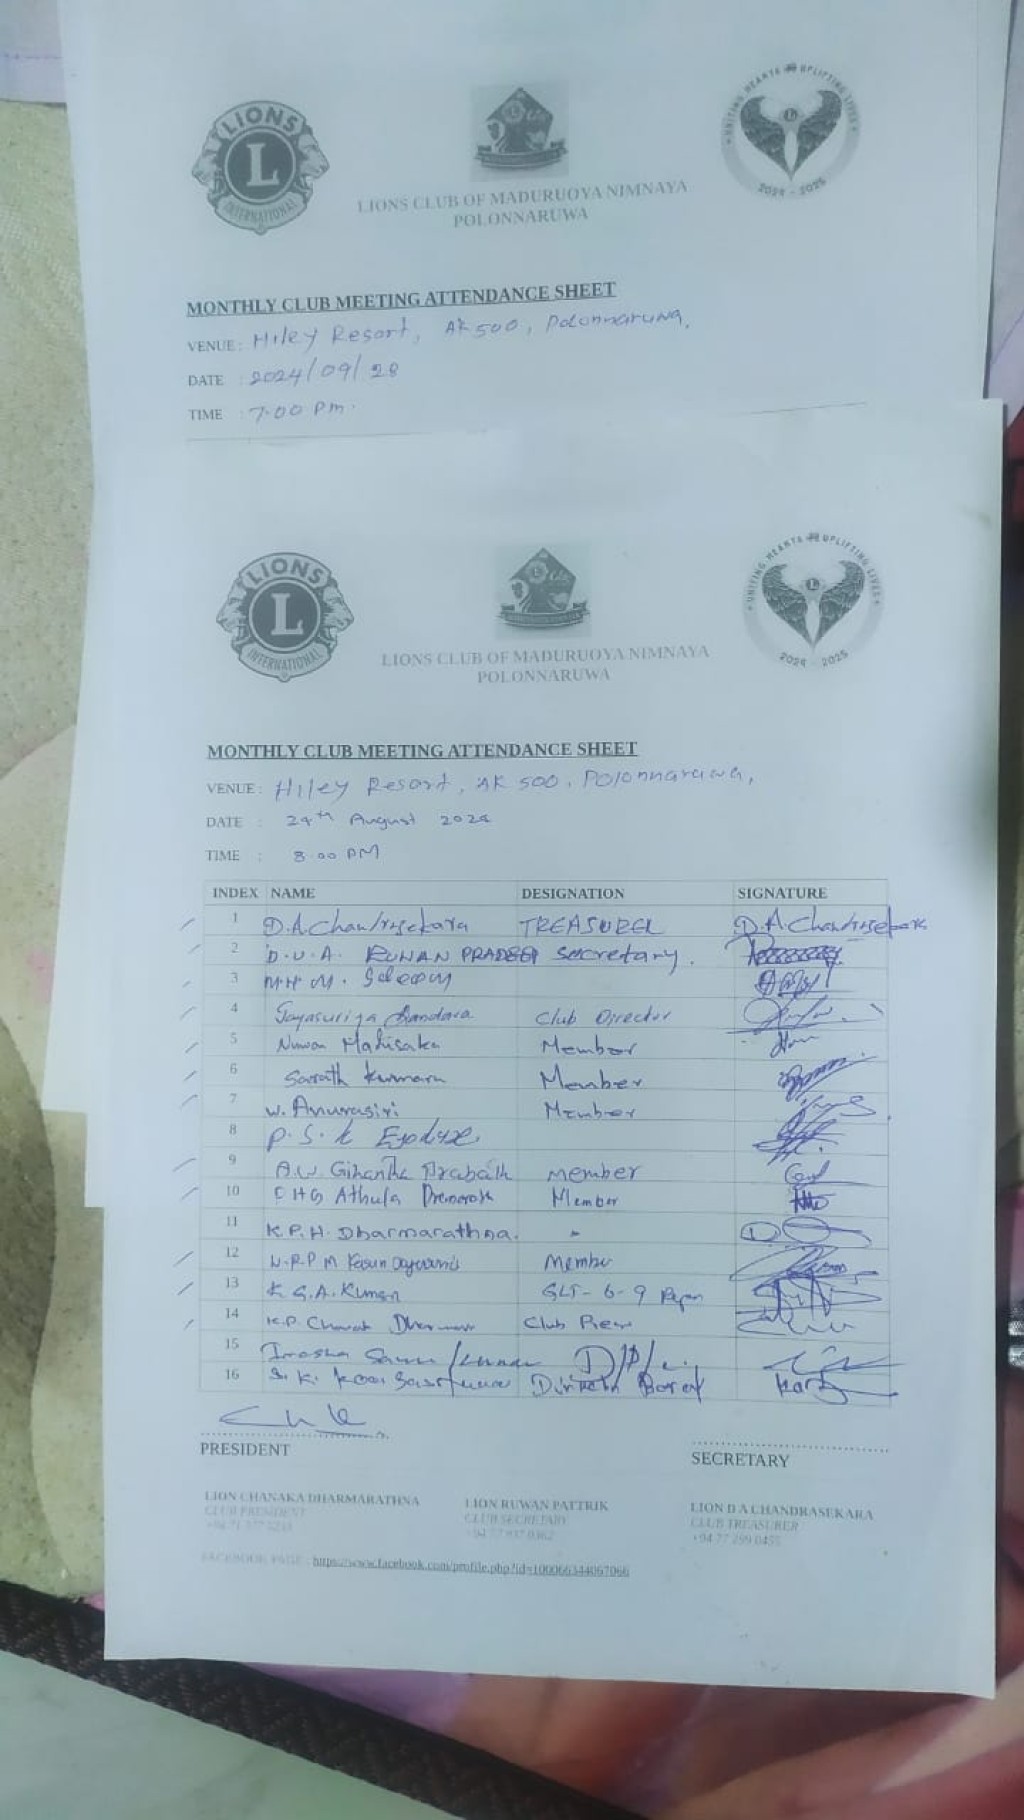 LIONS
L
INTERNATIONAL
UNITING HEARTS UPLIFTING LIVES
2024 - 2025
LIONS CLUB OF MADURUOYA NIMNAYA
POLONNARUWA
MONTHLY CLUB MEETING ATTENDANCE SHEET
VENUE : Hiley Resort, AK 500, Polonnaruwa,
DATE : 2024/09/28
TIME : 7.00 Pm.
LIONS
L
INTERNATIONAL
UNITING HEARTS UPLIFTING LIVES
2024 - 2025
LIONS CLUB OF MADURUOYA NIMNAYA
POLONNARUWA
MONTHLY CLUB MEETING ATTENDANCE SHEET
VENUE : Hiley Resort, AK 500, Polonnaruwa,
DATE : 24th August 2024
TIME : 8.00 PM
INDEX NAME DESIGNATION SIGNATURE
1 D.A.Chandrasekara TREASURER D.A.Chandrasekara
2 D.U.A. RUWAN PRADEEP secretary.
3 M.H.M. Saleem
4 Jayasuriya Bandara Club Director
5 Nuwan Madusaka Member
6 Sarath Kumara Member
7 W. Anurasiri Member
8 P.S.K
9 A.W. Gihantha Prabath member
10 Athula Member
11 K.P.H. Dharmarathna. "
12 Member
13 K.G.A. Kumara GLT-6-9
14 K.P. Club Pres
15
16 S.K.
PRESIDENT
SECRETARY
LION CHANAKA DHARMARATHNA LION RUWAN PATTRIK LION D A CHANDRASEKARA
CLUB PRESIDENT CLUB SECRETARY CLUB TREASURER
+94 77 299 0455
FACEBOOK PAGE : https://www.facebook.com/profile.php?id=100066344067066